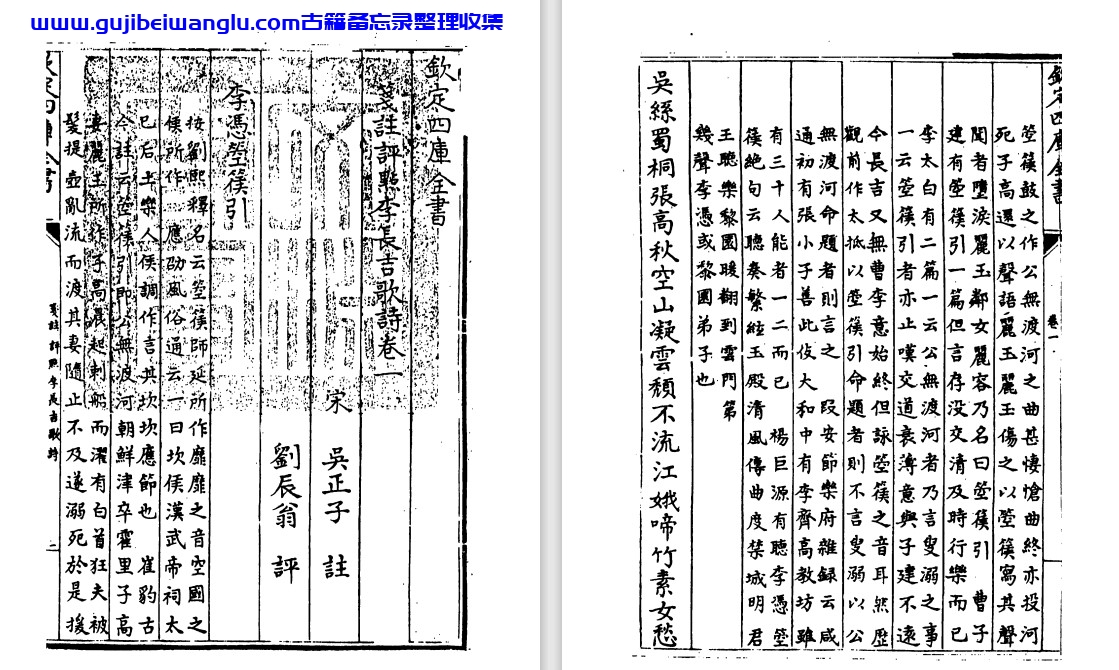 www.gujibeiwanglu.com古籍备忘录整理收集
欽定四庫全書
箋註評點李長吉歌詩卷一
宋 吳正子 註
劉辰翁 評
李憑箜篌引
按劉熙釋名云箜篌師延所作靡靡之音空國之
侯所作 應劭風俗通云一曰坎侯漢武帝祠太
乙后土樂人侯調作言其坎坎應節也 崔豹古
今註云箜篌引即公無渡河朝鮮津卒霍里子高
妻麗玉所作子高晨起刺船而濯有白首狂夫被
髮提壺亂流而渡其妻隨止不及遂溺死於是援
欽定四庫全書
箋註評點李長吉歌詩
欽定四庫全書
卷一
箜篌鼓之作公無渡河之曲甚悽愴曲終亦投河
死子高還以聲語麗玉麗玉傷之以箜篌寫其聲
聞者墮淚麗玉鄰女麗容乃名曰箜篌引 曹子
建有箜篌引一篇但言存没交清及時行樂而已
李太白有二篇一云公無渡河者乃言叟溺之事
一云箜篌引者亦止嘆交道衰薄意與子建不遠
今長吉又無曹李意始終但詠箜篌之音耳然歷
觀前作大抵以箜篌引命題者則不言叟溺以公
無渡河命題者則言之 段安節樂府雜録云咸
通初有張小子善此伎大和中有李齊高教坊雖
有三十人能者一二而已 楊巨源有聽李憑箜
篌絶句云聽奏繁絃玉殿清風傳曲度禁城明君
王聽樂黎園暖翻到雲門第
幾聲李憑或黎園弟子也
吳絲蜀桐張高秋空山凝雲頹不流江娥啼竹素女愁